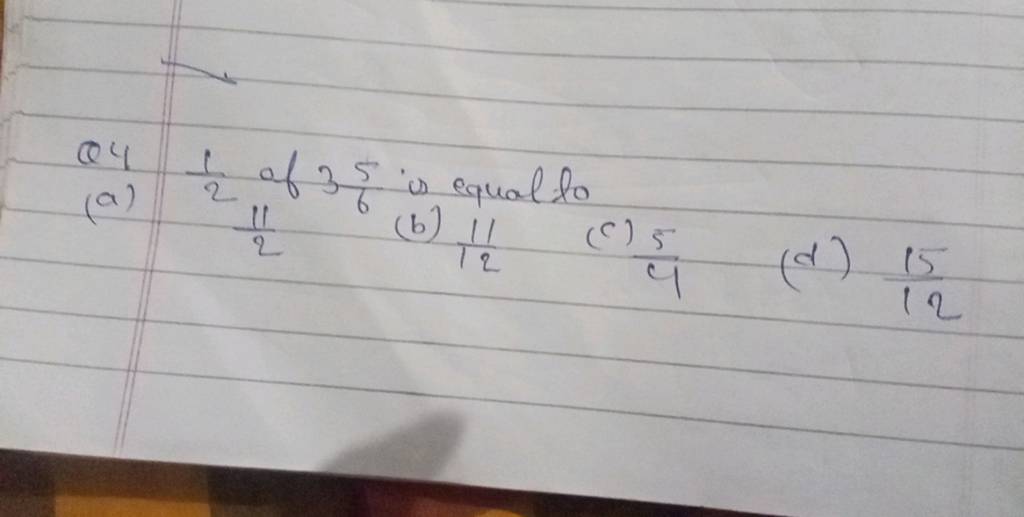 Q4 1/2 of 3 5/6 is equal to
(a) 11/2 (b) 11/12 (c) 5/4 (d) 15/12